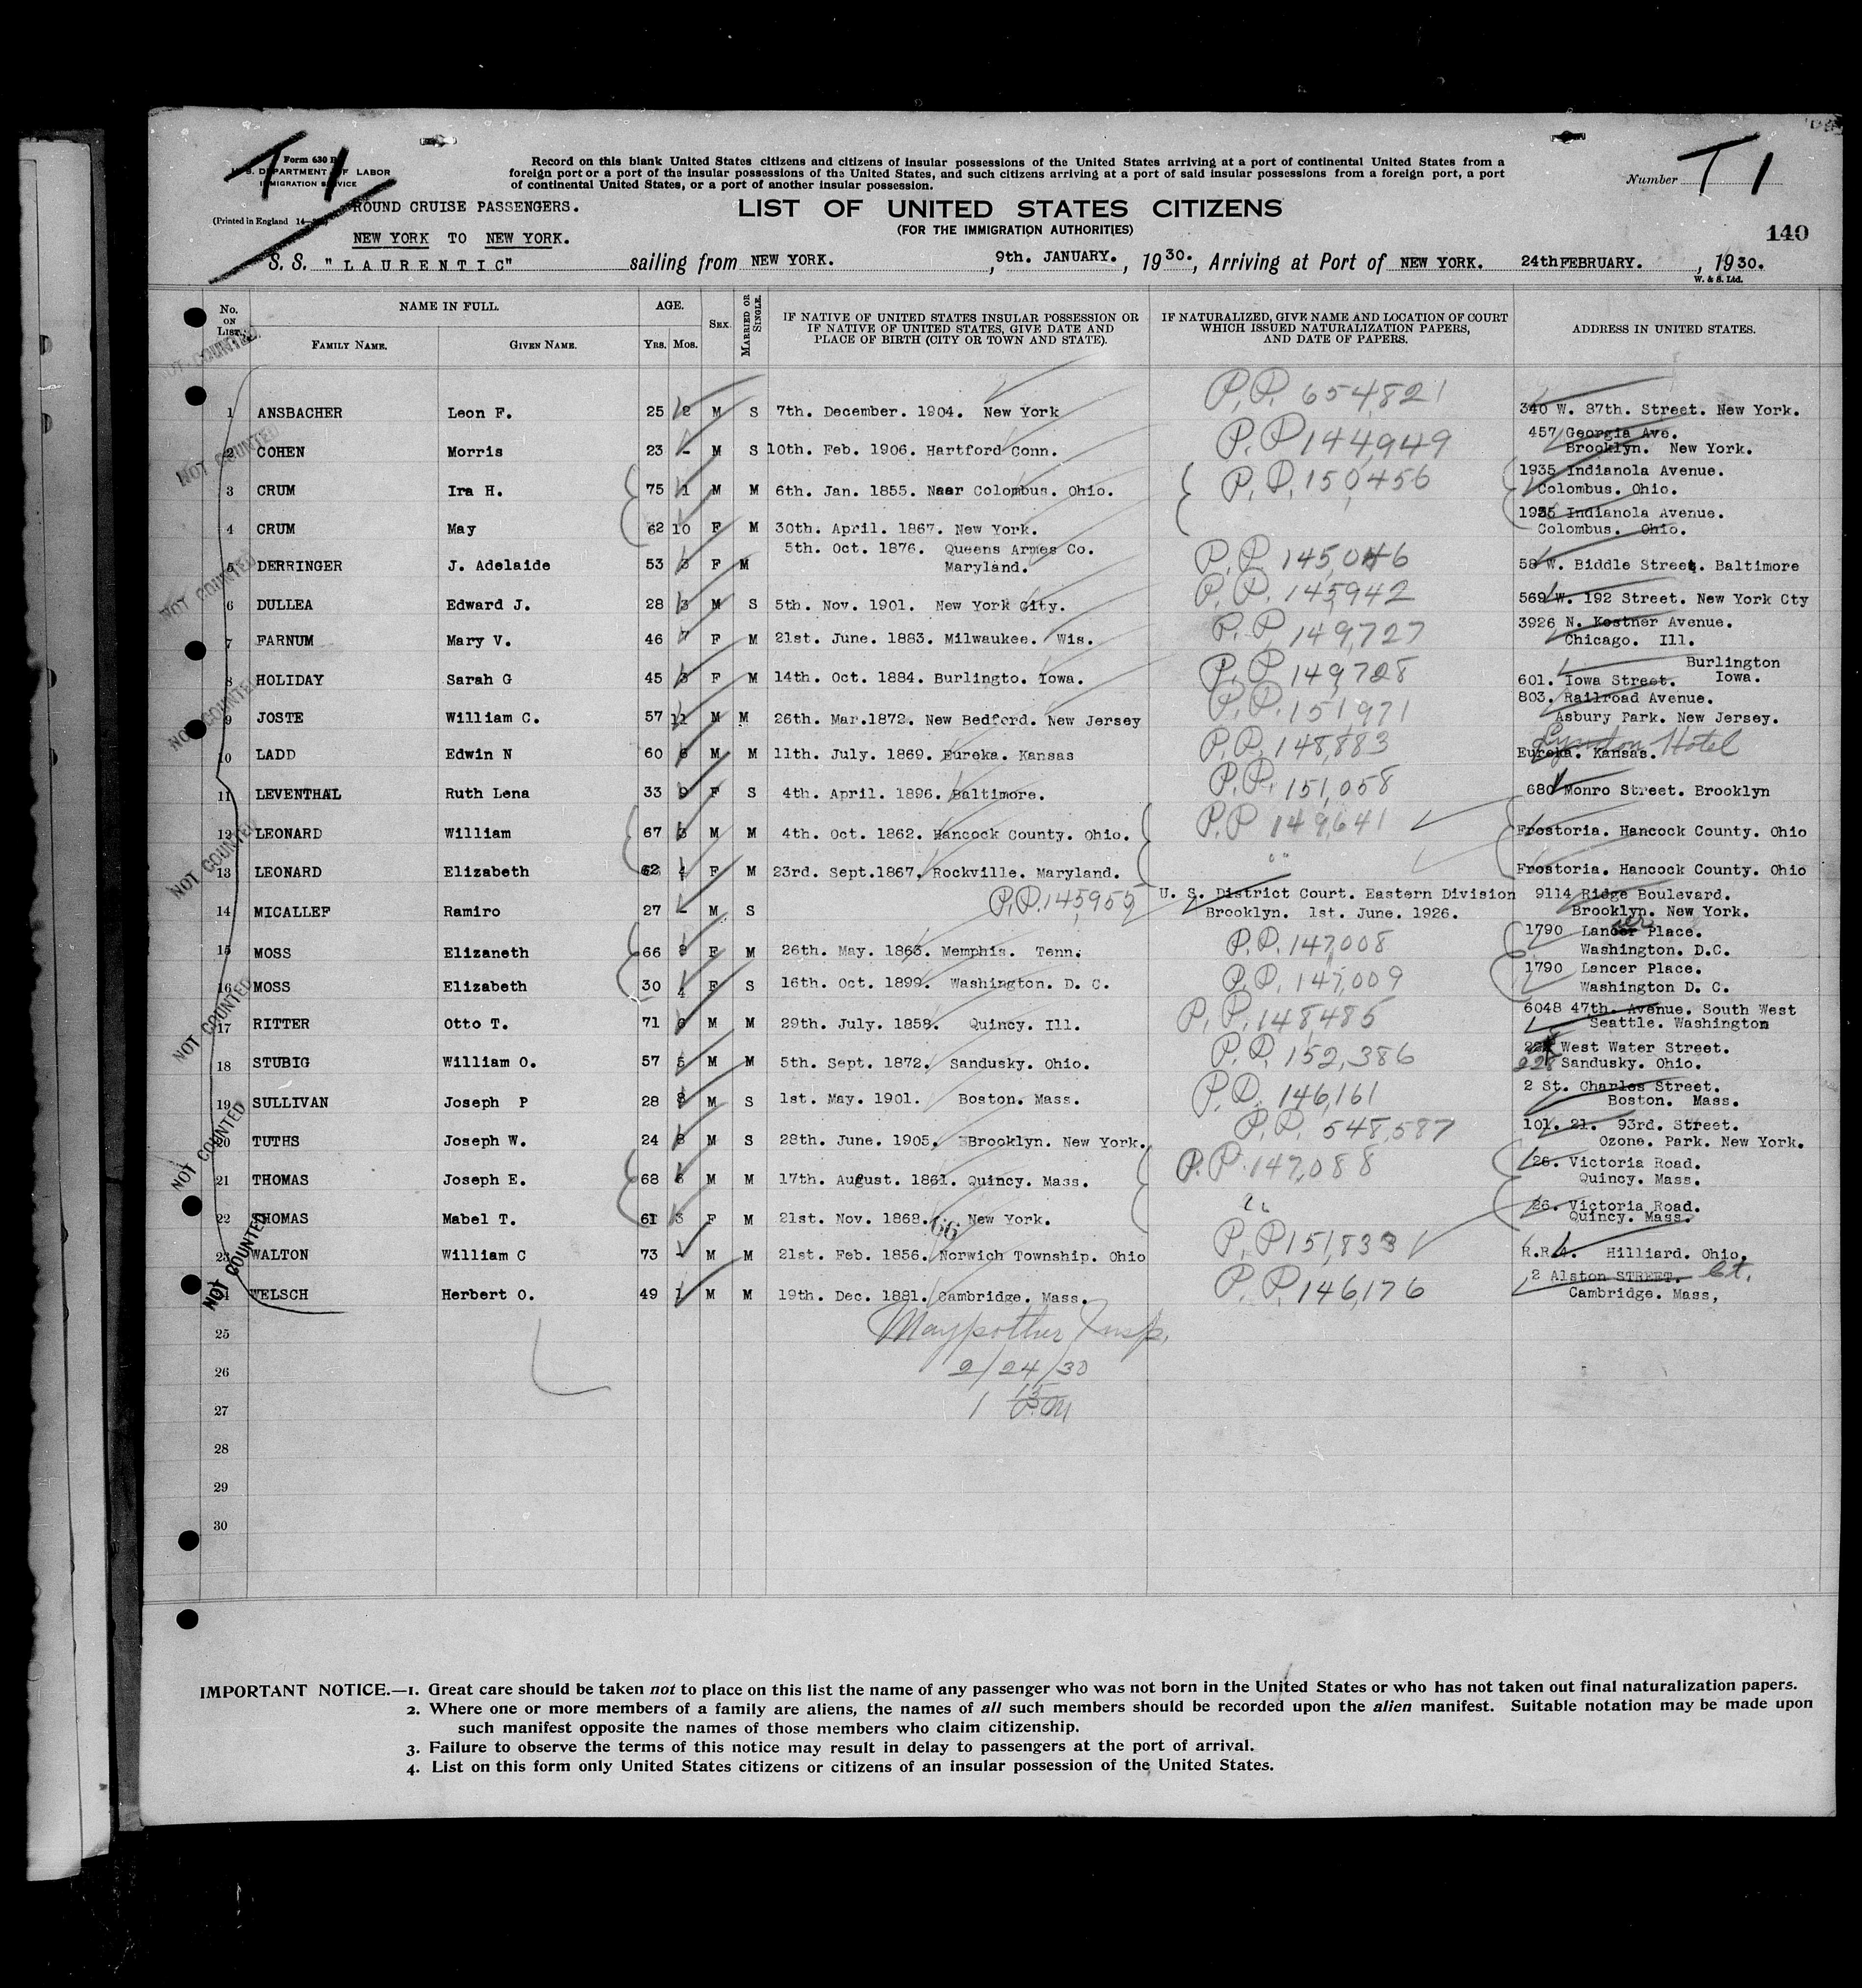 T1
Form 630 B
U. S. DEPARTMENT OF LABOR
IMMIGRATION SERVICE
(Printed in England
Record on this blank United States citizens and citizens of insular possessions of the United States arriving at a port of continental United States from a
foreign port or a port of the insular possessions of the United States, and such citizens arriving at a port of said insular possessions from a foreign port, a port
of continental United States, or a port of another insular possession.
Number T 1
ROUND CRUISE PASSENGERS.
LIST OF UNITED STATES CITIZENS
(FOR THE IMMIGRATION AUTHORITIES)
140
NEW YORK TO NEW YORK.
S. S. "LAURENTIC" sailing from NEW YORK. , 9th. JANUARY. , 1930. , Arriving at Port of NEW YORK. 24th FEBRUARY. , 1930.
W. & S. Ltd.
No. ON LIST. NAME IN FULL. FAMILY NAME. GIVEN NAME. AGE. YRS. MOS. SEX. MARRIED OR SINGLE. IF NATIVE OF UNITED STATES INSULAR POSSESSION OR IF NATIVE OF UNITED STATES, GIVE DATE AND PLACE OF BIRTH (CITY OR TOWN AND STATE). IF NATURALIZED, GIVE NAME AND LOCATION OF COURT WHICH ISSUED NATURALIZATION PAPERS, AND DATE OF PAPERS. ADDRESS IN UNITED STATES.
1 ANSBACHER Leon F. 25 2 M S 7th. December. 1904. New York P.P. 654,821 340 W. 87th. Street. New York.
2 COHEN Morris 23 - M S 10th. Feb. 1906. Hartford Conn. P.P. 144,949 457 Georgia Ave. Brooklyn. New York.
3 CRUM Ira H. 75 1 M M 6th. Jan. 1855. Near Colombus. Ohio. P.P. 150,456 1935 Indianola Avenue. Colombus. Ohio.
4 CRUM May 62 10 F M 30th. April. 1867. New York. 1935 Indianola Avenue. Colombus. Ohio.
5 DERRINGER J. Adelaide 53 3 F M 5th. Oct. 1876. Queens Armes Co. Maryland. P.P. 145,046 58 W. Biddle Street. Baltimore
6 DULLEA Edward J. 28 3 M S 5th. Nov. 1901. New York City. P.P. 145,942 569 W. 192 Street. New York Cty
7 FARNUM Mary V. 46 7 F M 21st. June. 1883. Milwaukee. Wis. P.P. 149,727 3926 N. Kostner Avenue. Chicago. Ill.
8 HOLIDAY Sarah G 45 3 F M 14th. Oct. 1884. Burlingto. Iowa. P.P. 149,728 601. Iowa Street. Burlington Iowa.
9 JOSTE William C. 57 11 M M 26th. Mar.1872. New Bedford. New Jersey P.P. 151,971 803. Railroad Avenue. Asbury Park. New Jersey.
10 LADD Edwin N 60 6 M M 11th. July. 1869. Eureka. Kansas P.P. 148,883 Eureka. Kansas. Hotel
11 LEVENTHAL Ruth Lena 33 9 F S 4th. April. 1896. Baltimore. P.P. 151,058 680 Monro Street. Brooklyn
12 LEONARD William 67 3 M M 4th. Oct. 1862. Hancock County. Ohio. P.P 149,641 Frostoria. Hancock County. Ohio
13 LEONARD Elizabeth 62 4 F M 23rd. Sept.1867. Rockville. Maryland. " " Frostoria. Hancock County. Ohio
14 MICALLEF Ramiro 27 - M S P.P. 145,955 U. S. District Court. Eastern Division Brooklyn. 1st. June. 1926. 9114 Ridge Boulevard. Brooklyn. New York.
15 MOSS Elizaneth 66 8 F M 26th. May. 1863. Memphis. Tenn. P.P. 147,008 1790 Lancer Place. Washington. D.C.
16 MOSS Elizabeth 30 4 F S 16th. Oct. 1899. Washington. D. C. P.P. 147,009 1790 Lancer Place. Washington D. C.
17 RITTER Otto T. 71 M M 29th. July. 1858. Quincy. Ill. P.P. 148,485 6048 47th. Avenue. South West Seattle. Washington
18 STUBIG William O. 57 5 M M 5th. Sept. 1872. Sandusky. Ohio. P.P. 152,386 228 West Water Street. Sandusky. Ohio.
19 SULLIVAN Joseph P 28 8 M S 1st. May. 1901. Boston. Mass. P.P. 146,161 2 St. Charles Street. Boston. Mass.
20 TUTHS Joseph W. 24 8 M S 28th. June. 1905. Brooklyn. New York. P.P. 548,587 101. 21. 93rd. Street. Ozone. Park. New York.
21 THOMAS Joseph E. 68 6 M M 17th. August. 1861. Quincy. Mass. P.P. 147,088 26. Victoria Road. Quincy. Mass.
22 THOMAS Mabel T. 61 3 F M 21st. Nov. 1868. New York. " 26. Victoria Road. Quincy. Mass.
23 WALTON William C 73 - M M 21st. Feb. 1856. 66 Norwich Township. Ohio P.P 151,833 R.R. Hilliard. Ohio.
24 WELSCH Herbert O. 49 1 M M 19th. Dec. 1881. Cambridge. Mass. P.P. 146,176 2 Alston STREET. Ct. Cambridge. Mass,
NOT COUNTED
NOT COUNTED
NOT COUNTED
NOT COUNTED
NOT COUNTED
NOT COUNTED
NOT COUNTED
NOT COUNTED
25
Maypother Insp.
26
2/24/30
27
1 15 P.M
28
29
30
IMPORTANT NOTICE.—1. Great care should be taken not to place on this list the name of any passenger who was not born in the United States or who has not taken out final naturalization papers.
2. Where one or more members of a family are aliens, the names of all such members should be recorded upon the alien manifest. Suitable notation may be made upon
such manifest opposite the names of those members who claim citizenship.
3. Failure to observe the terms of this notice may result in delay to passengers at the port of arrival.
4. List on this form only United States citizens or citizens of an insular possession of the United States.